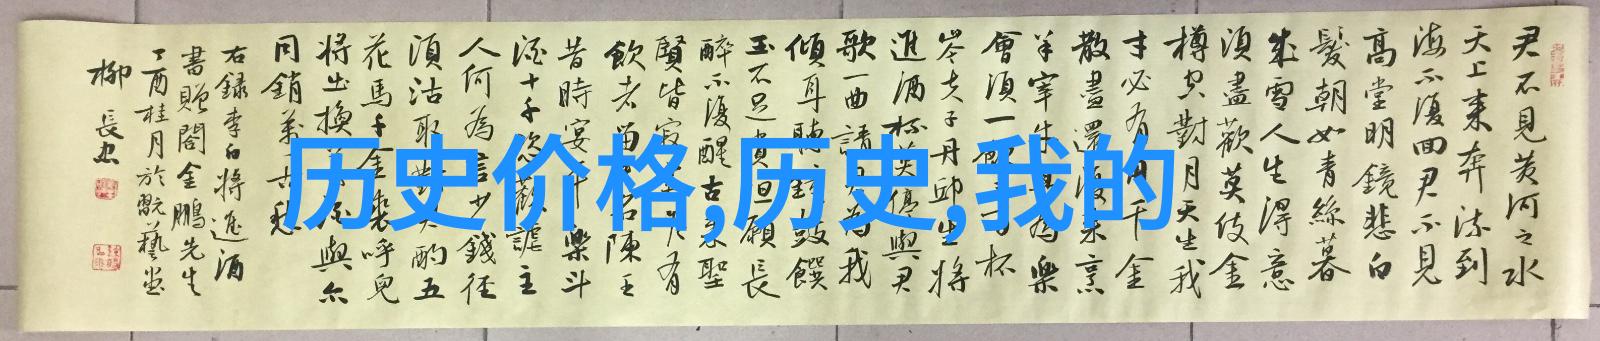 君不见黄河之水
天上来奔流到
海不復回君不見
高堂明鏡悲白
髮朝如青絲暮
成雪人生得意
須盡歡莫使金
樽空對月天生我
才必有用千金
散盡還復来烹
羊宰牛且為樂
會須一飲三百杯
岑夫子丹邱生将
進酒杯莫停與君
歌一曲請君為我
傾耳聽鐘鼓饌
玉不足貴但願長
醉不復醒古来聖
賢皆寂寞惟有
飲者留其名陳王
昔時宴平樂斗
酒十千恣歡謔主
人何為言少錢径
須沽取對君酌五
花馬千金裘呼兒
将出換美酒與尔
同銷萬古愁
右録李白将進酒
書贈閻金鵬先生
丁酉桂月於
柳長忠
历史价格,历史,我的